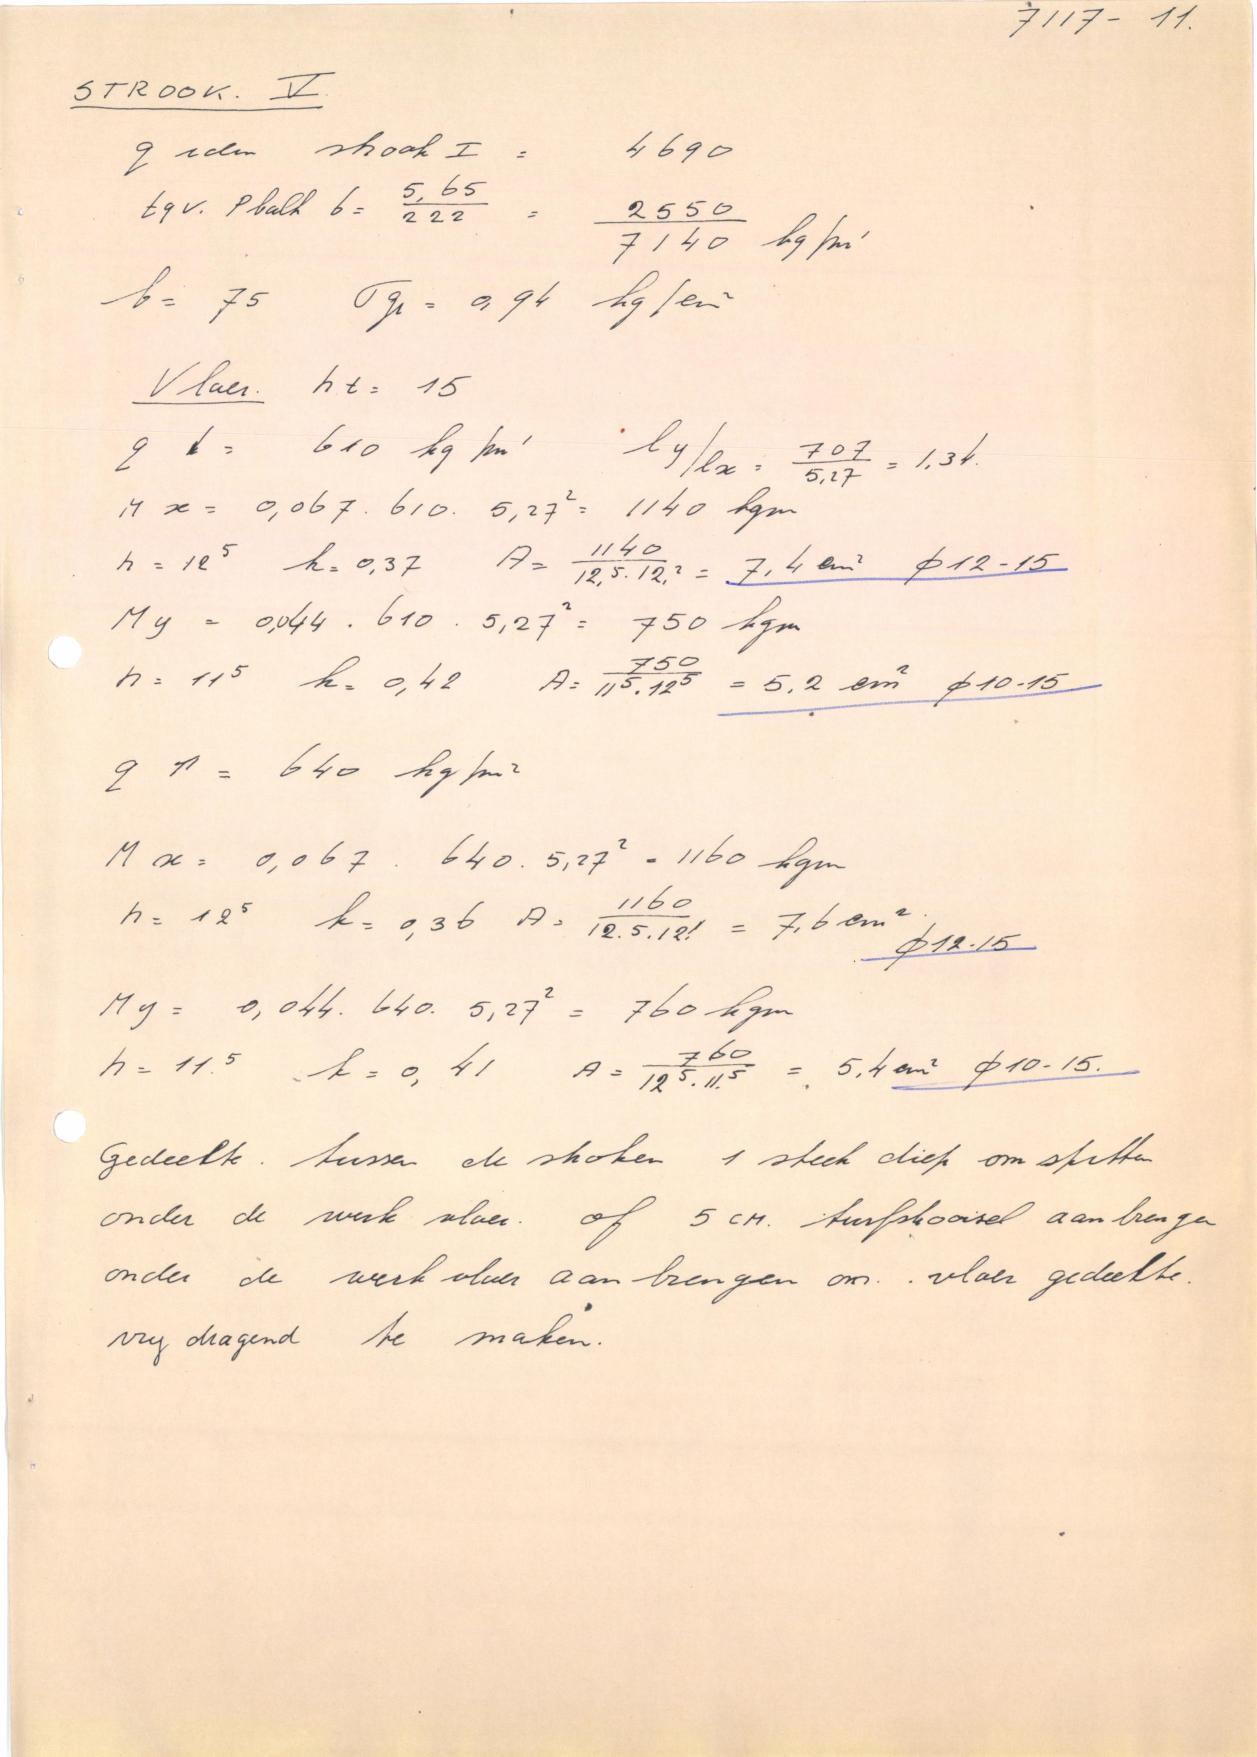 7117- 11.
STROOK. V.
q idem strook I = 4690
tgv. Pbalk 6 = 5,65/222 = 2550
7140 kg/m'
b = 75 σgr = 0,94 kg/cm²
Vloer. ht = 15
q ↓ = 610 kg/m' ly/lx = 707/5,27 = 1,34.
Mx = 0,067 . 610 . 5,27² = 1140 kgm
h = 12⁵ k = 0,37 A = 1140/12,5.12,² = 7,4 cm² φ12-15
My = 0,044 . 610 . 5,27² = 750 kgm
h = 11⁵ k = 0,42 A = 750/11⁵.12⁵ = 5,2 cm² φ10-15
q ↑ = 640 kg/m²
Mx = 0,067 . 640 . 5,27² = 1160 kgm
h = 12⁵ k = 0,36 A = 1160/12.5.12! = 7,6 cm²
φ12-15
My = 0,044 . 640 . 5,27² = 760 kgm
h = 11.⁵ k = 0,41 A = 760/12⁵.11.⁵ = 5,4 cm² φ10-15.
Gedeelte. tussen de stroken 1 steek diep om spitten
onder de werk vloer. of 5 cm. turfstrooisel aan brengen
onder de werk vloer aan brengen om. vloer gedeelte.
vrij dragend te maken.